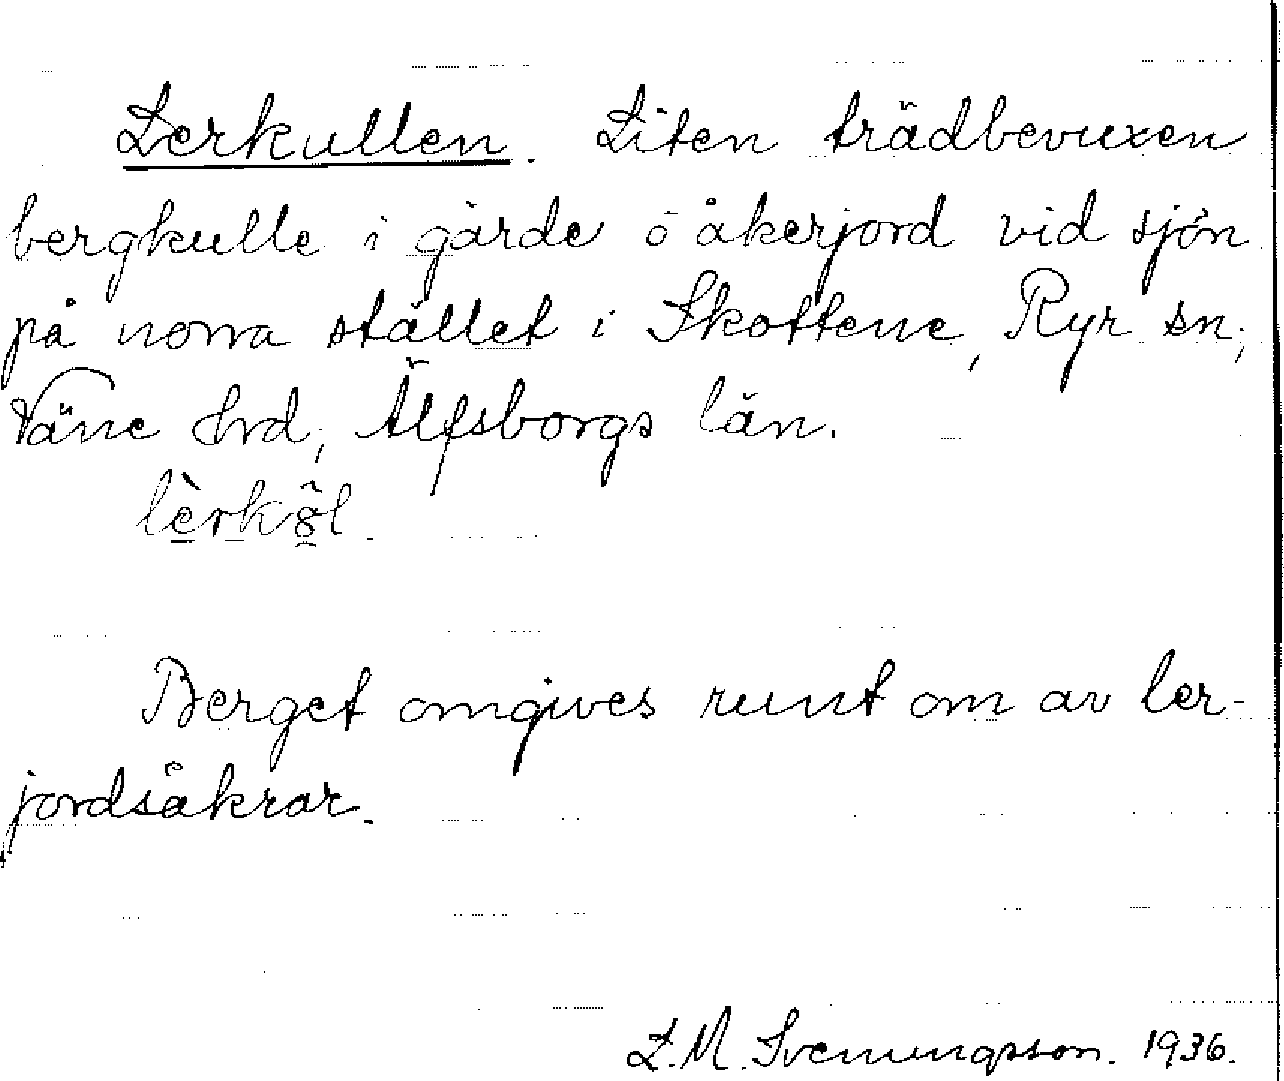 Lerkullen. Liten trädbevuxen
bergkulle i gärde o åkerjord vid sjön
på norra stället i Skottene, Ryr sn,
Väne hrd, Älfsborgs län.
Berget omgives runt om av ler-
jordsåkrar.
L. M. Svenungsson. 1936.